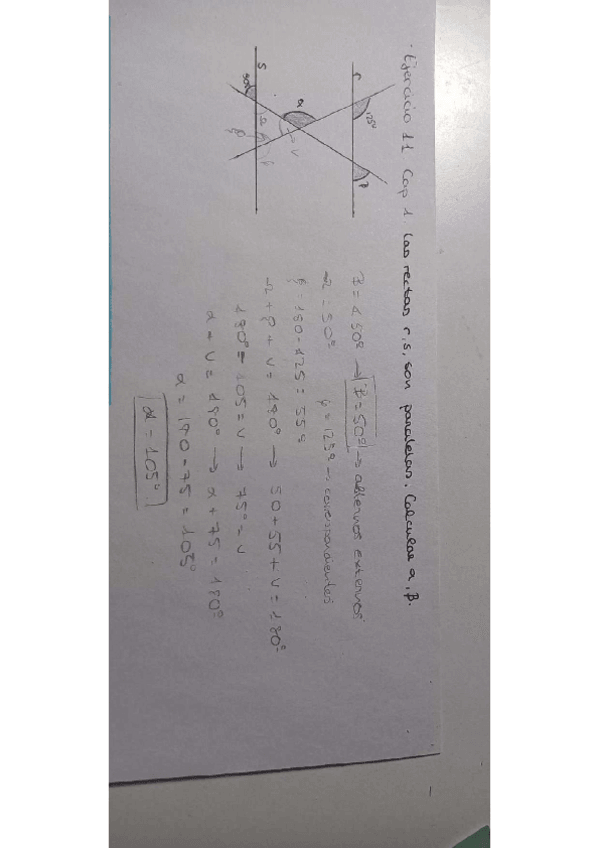 · Ejercicio 11 Cap 1. Las rectas r, s, son paralelas. Calcular α, β.
r
125º
β
α
v
s
50º
β = 180º → β = 50º → alternos externos
= 50º = 125º → correspondientes
= 180 - 125 = 55º
+ + v = 180º → 50 + 55 + v = 180º
180º - 105 = v → 75º = v
α + v = 180º → α + 75 = 180º
α = 180 - 75 = 105º
α = 105º.